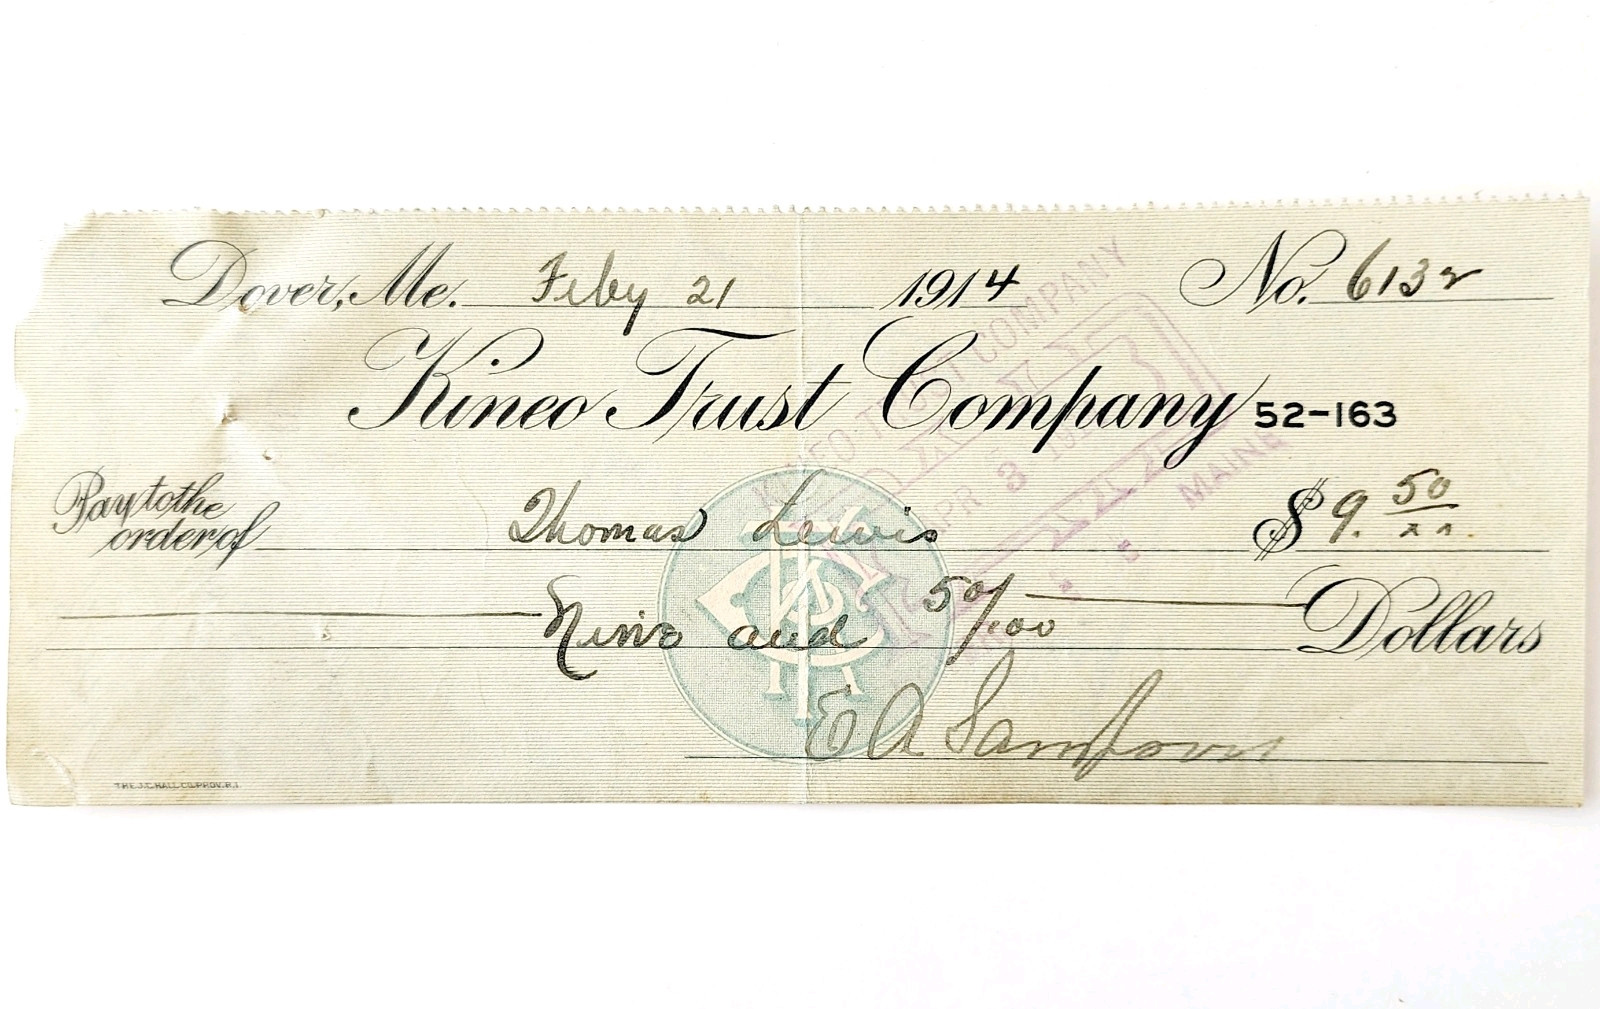 Dover, Me. Feby 21 1914 No. 6132
Kineo Trust Company 52-163
Pay to the order of Thomas Lewis $9. 50/xx.
Nine and 50/100 Dollars
E A Sampson
KINEO TRUST COMPANY
PAID
APR 3 191
MAINE
THE J.C. HALL CO. PROV. R.I.